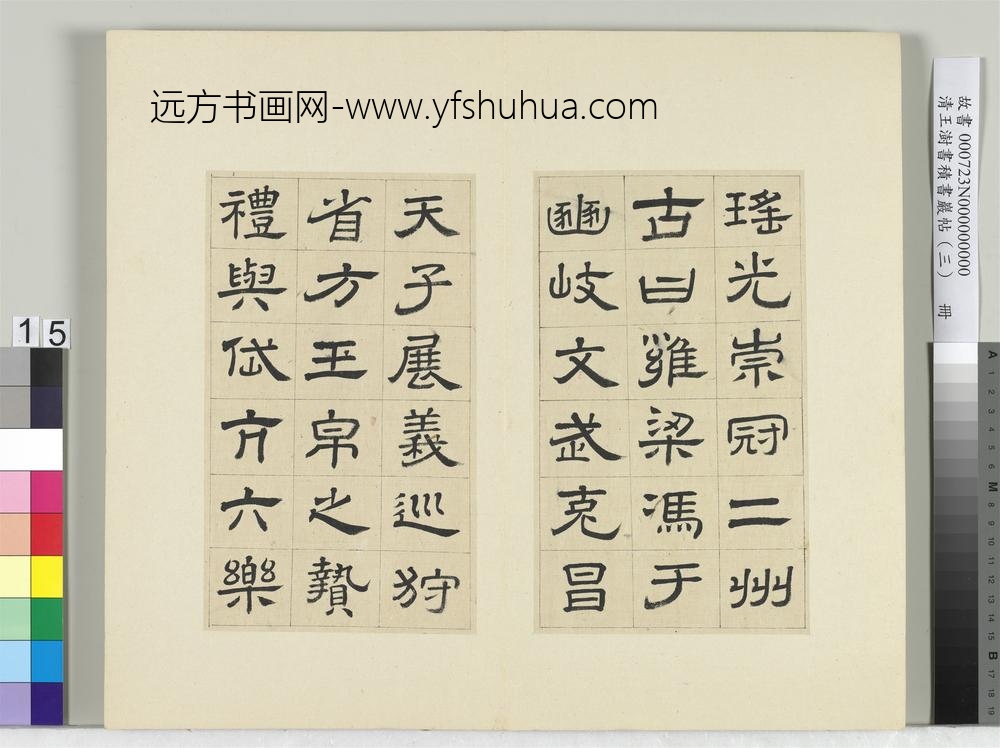 远方书画网-www.yfshuhua.com
瑤光崇冠二州
古曰雍梁馮于
豳岐文武克昌
天子展義巡狩
省方玉帛之贄
禮與岱亢六樂
故書 000723N000000000
清王澍書積書巖帖（三） 冊
15
A 1 2 3 4 5 6 M 8 9 10 11 12 13 14 15 B 17 18 19